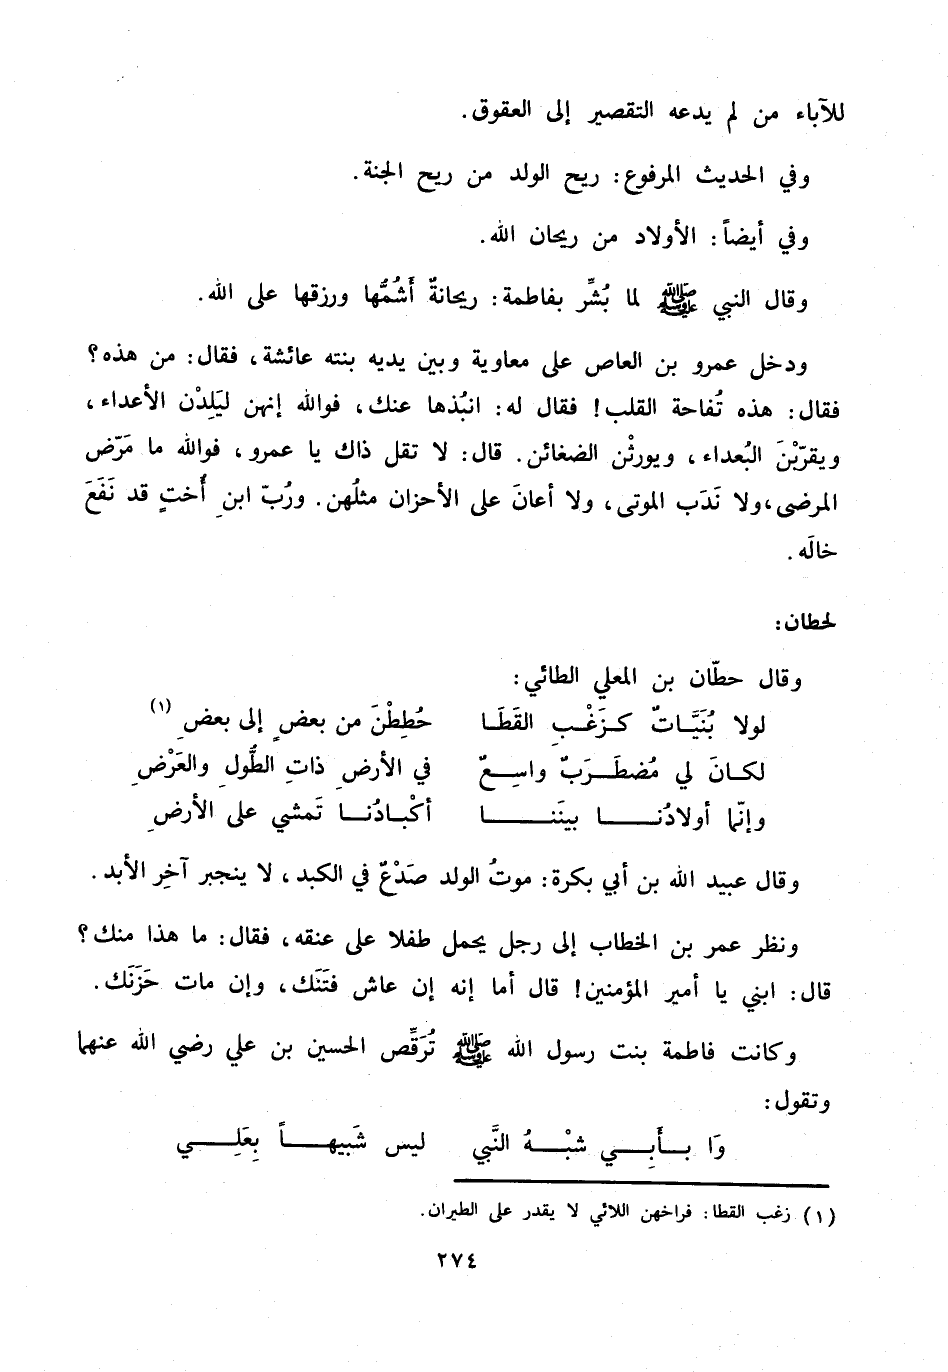 للآباء من لم يدعه التقصير إلى العقوق.
وفي الحديث المرفوع: ريح الولد من ريح الجنة.
وفي أيضاً: الأولاد من ريحان الله.
وقال النبي ﷺ لما بُشِّر بفاطمة: ريحانةٌ أَشُمُّها ورزقها على الله.
ودخل عمرو بن العاص على معاوية وبين يديه بنته عائشة، فقال: من هذه؟
فقال: هذه تُفاحة القلب! فقال له: انبُذها عنك، فوالله إنهن ليَلِدْن الأعداء،
ويقرّبْنَ البُعداء، ويورثْن الضغائن. قال: لا تقل ذاك يا عمرو، فوالله ما مَرّض
المرضى، ولا نَدَب الموتى، ولا أعانَ على الأحزان مثلُهن. ورُبّ ابن أُختٍ قد نَفَعَ
خالَه.
لحطان:
وقال حطّان بن المعلي الطائي:
لولا بُنَيَّاتٌ كزَغْبِ القَطَا حُطِطْنَ من بعضٍ إلى بعضِ (١)
لكانَ لي مُضطَرَبٌ واسِعٌ في الأرضِ ذاتِ الطُّولِ والعَرْضِ
وإنّما أولادُنا بينَنا أكْبادُنا تَمشي على الأرضِ
وقال عبيد الله بن أبي بكرة: موتُ الولد صَدْعٌ في الكبد، لا ينجبر آخِر الأبد.
ونظر عمر بن الخطاب إلى رجل يحمل طفلا على عنقه، فقال: ما هذا منك؟
قال: ابني يا أمير المؤمنين! قال أما إنه إن عاش فتَنَك، وإن مات حَزَنَك.
وكانت فاطمة بنت رسول الله ﷺ تُرَقِّص الحسين بن علي رضي الله عنهما
وتقول:
وَا بِأَبِي شبْهُ النَّبي ليس شَبيهاً بِعَلِي
(١) زغب القطا: فراخهن اللائي لا يقدر على الطيران.
٢٧٤